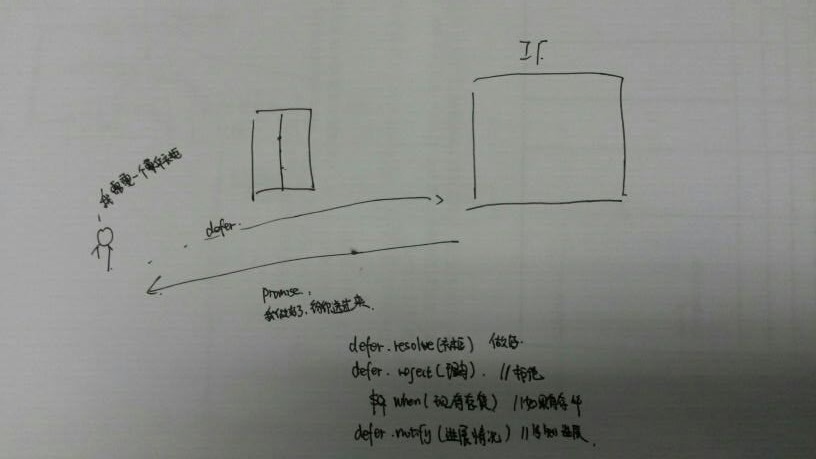 工厂
我需要一个衣柜
defer.
promise.
我做好了,给你送过来.
defer.resolve(衣柜) 做好
defer.reject(理由). //拒绝
$q when(现有存货) //如果有
defer.notify(进展情况) //告知进展.